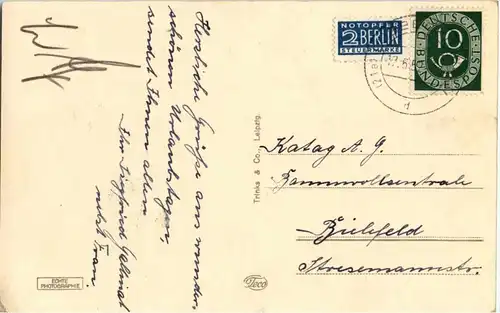 Herzliche Grüße aus wunder-
schönen Urlaubstagen,
sendet Ihnen allen
Ihr Siegfried
nebst Frau.
Trinks & Co., Leipzig.
NOTOPFER
2 BERLIN
STEUERMARKE
DEUTSCHE
10
BUNDESPOST
Katag A.G.
Baumwollzentrale
Bielefeld
Stresemannstr.
ECHTE
PHOTOGRAPHIE
Teco